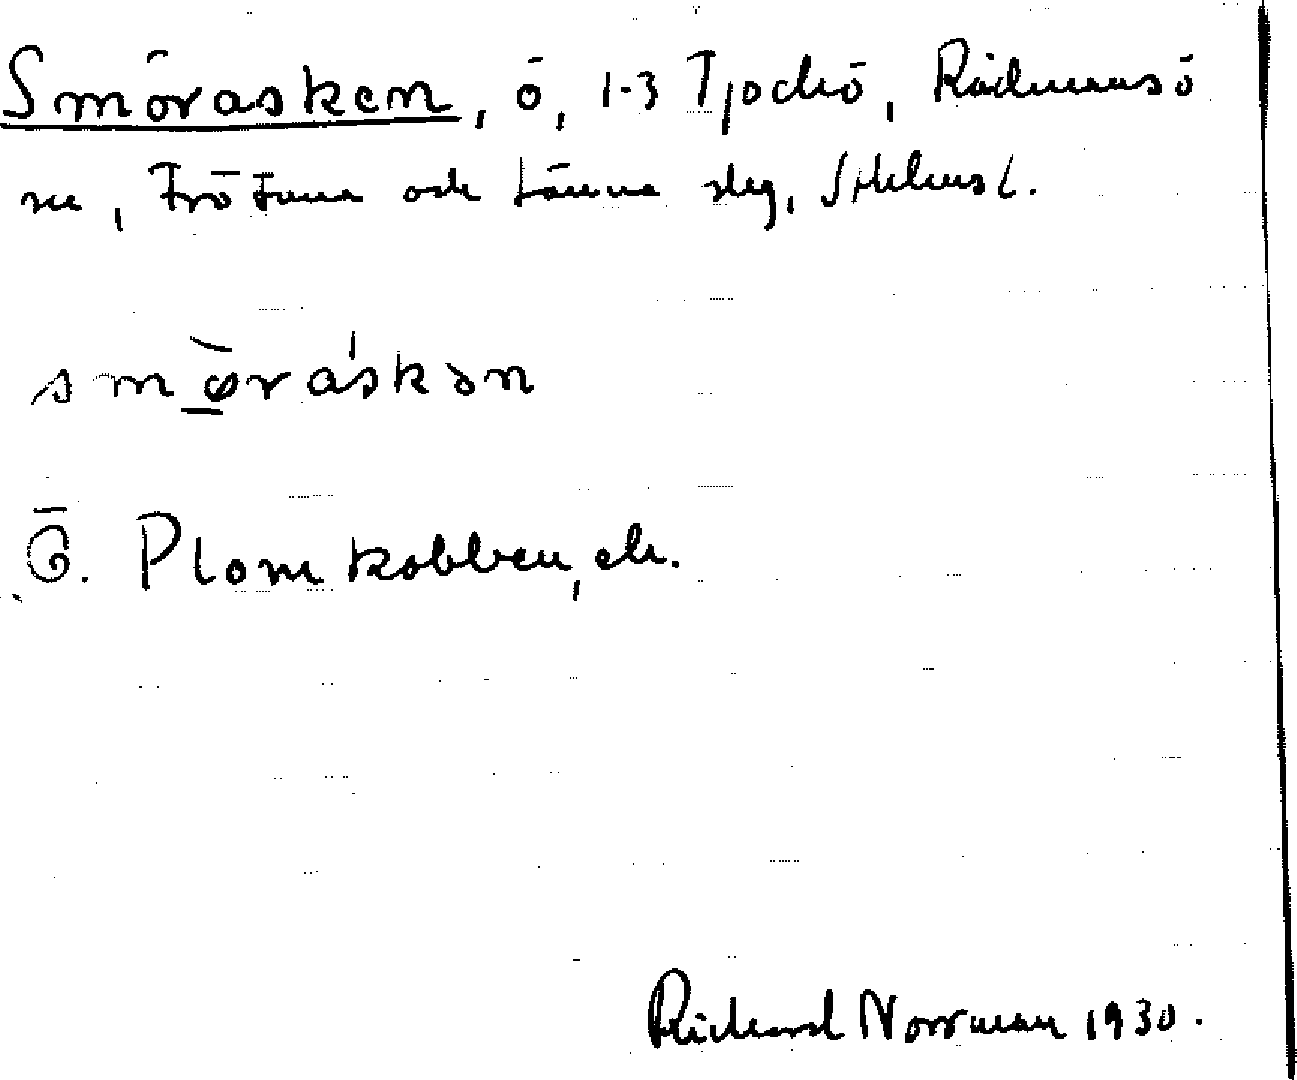 Smörasken, ö, 1-3 Tjockö, Rådmansö
sn, Frötuna och Länna slg, Sthlms l.
smø̀rás̀kən
Ö. Plomkobben, ek.
Richard Norrman 1930.